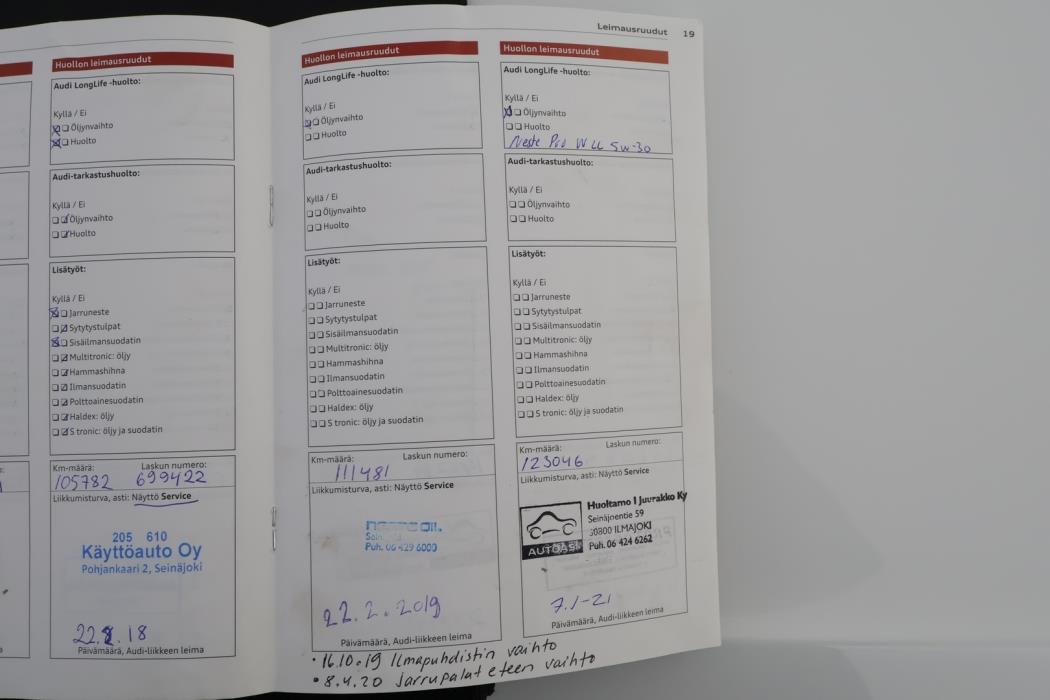 Leimausruudut 19
Huollon leimausruudut
Audi LongLife -huolto:
Kyllä / Ei
Öljynvaihto
Huolto
Audi-tarkastushuolto:
Kyllä / Ei
Öljynvaihto
Huolto
Lisätyöt:
Kyllä / Ei
Jarruneste
Sytytystulpat
Sisäilmansuodatin
Multitronic: öljy
Hammashihna
Ilmansuodatin
Polttoainesuodatin
Haldex: öljy
S tronic: öljy ja suodatin
Km-määrä: Laskun numero:
105782 699422
Liikkumisturva, asti: Näyttö Service
205 610
Käyttöauto Oy
Pohjankaari 2, Seinäjoki
22.2.18
Päivämäärä, Audi-liikkeen leima
Huollon leimausruudut
Audi LongLife -huolto:
Kyllä / Ei
Öljynvaihto
Huolto
Audi-tarkastushuolto:
Kyllä / Ei
Öljynvaihto
Huolto
Lisätyöt:
Kyllä / Ei
Jarruneste
Sytytystulpat
Sisäilmansuodatin
Multitronic: öljy
Hammashihna
Ilmansuodatin
Polttoainesuodatin
Haldex: öljy
S tronic: öljy ja suodatin
Km-määrä: Laskun numero:
111481
Liikkumisturva, asti: Näyttö Service
Puh. 06 429 6000
22.2.2019
Päivämäärä, Audi-liikkeen leima
Huollon leimausruudut
Audi LongLife -huolto:
Kyllä / Ei
Öljynvaihto
Huolto
Neste Pro W LL 5w-30
Audi-tarkastushuolto:
Kyllä / Ei
Öljynvaihto
Huolto
Lisätyöt:
Kyllä / Ei
Jarruneste
Sytytystulpat
Sisäilmansuodatin
Multitronic: öljy
Hammashihna
Ilmansuodatin
Polttoainesuodatin
Haldex: öljy
S tronic: öljy ja suodatin
Km-määrä: Laskun numero:
123046
Liikkumisturva, asti: Näyttö Service
Huoltamo I Juurakko Ky
Seinäjoentie 59
30800 ILMAJOKI
Puh. 06 424 6262
AUTOASI
7.1-21
Päivämäärä, Audi-liikkeen leima
• 16.10.19 Ilmapuhdistin vaihto
• 8.4.20 Jarrupalat eteen vaihto